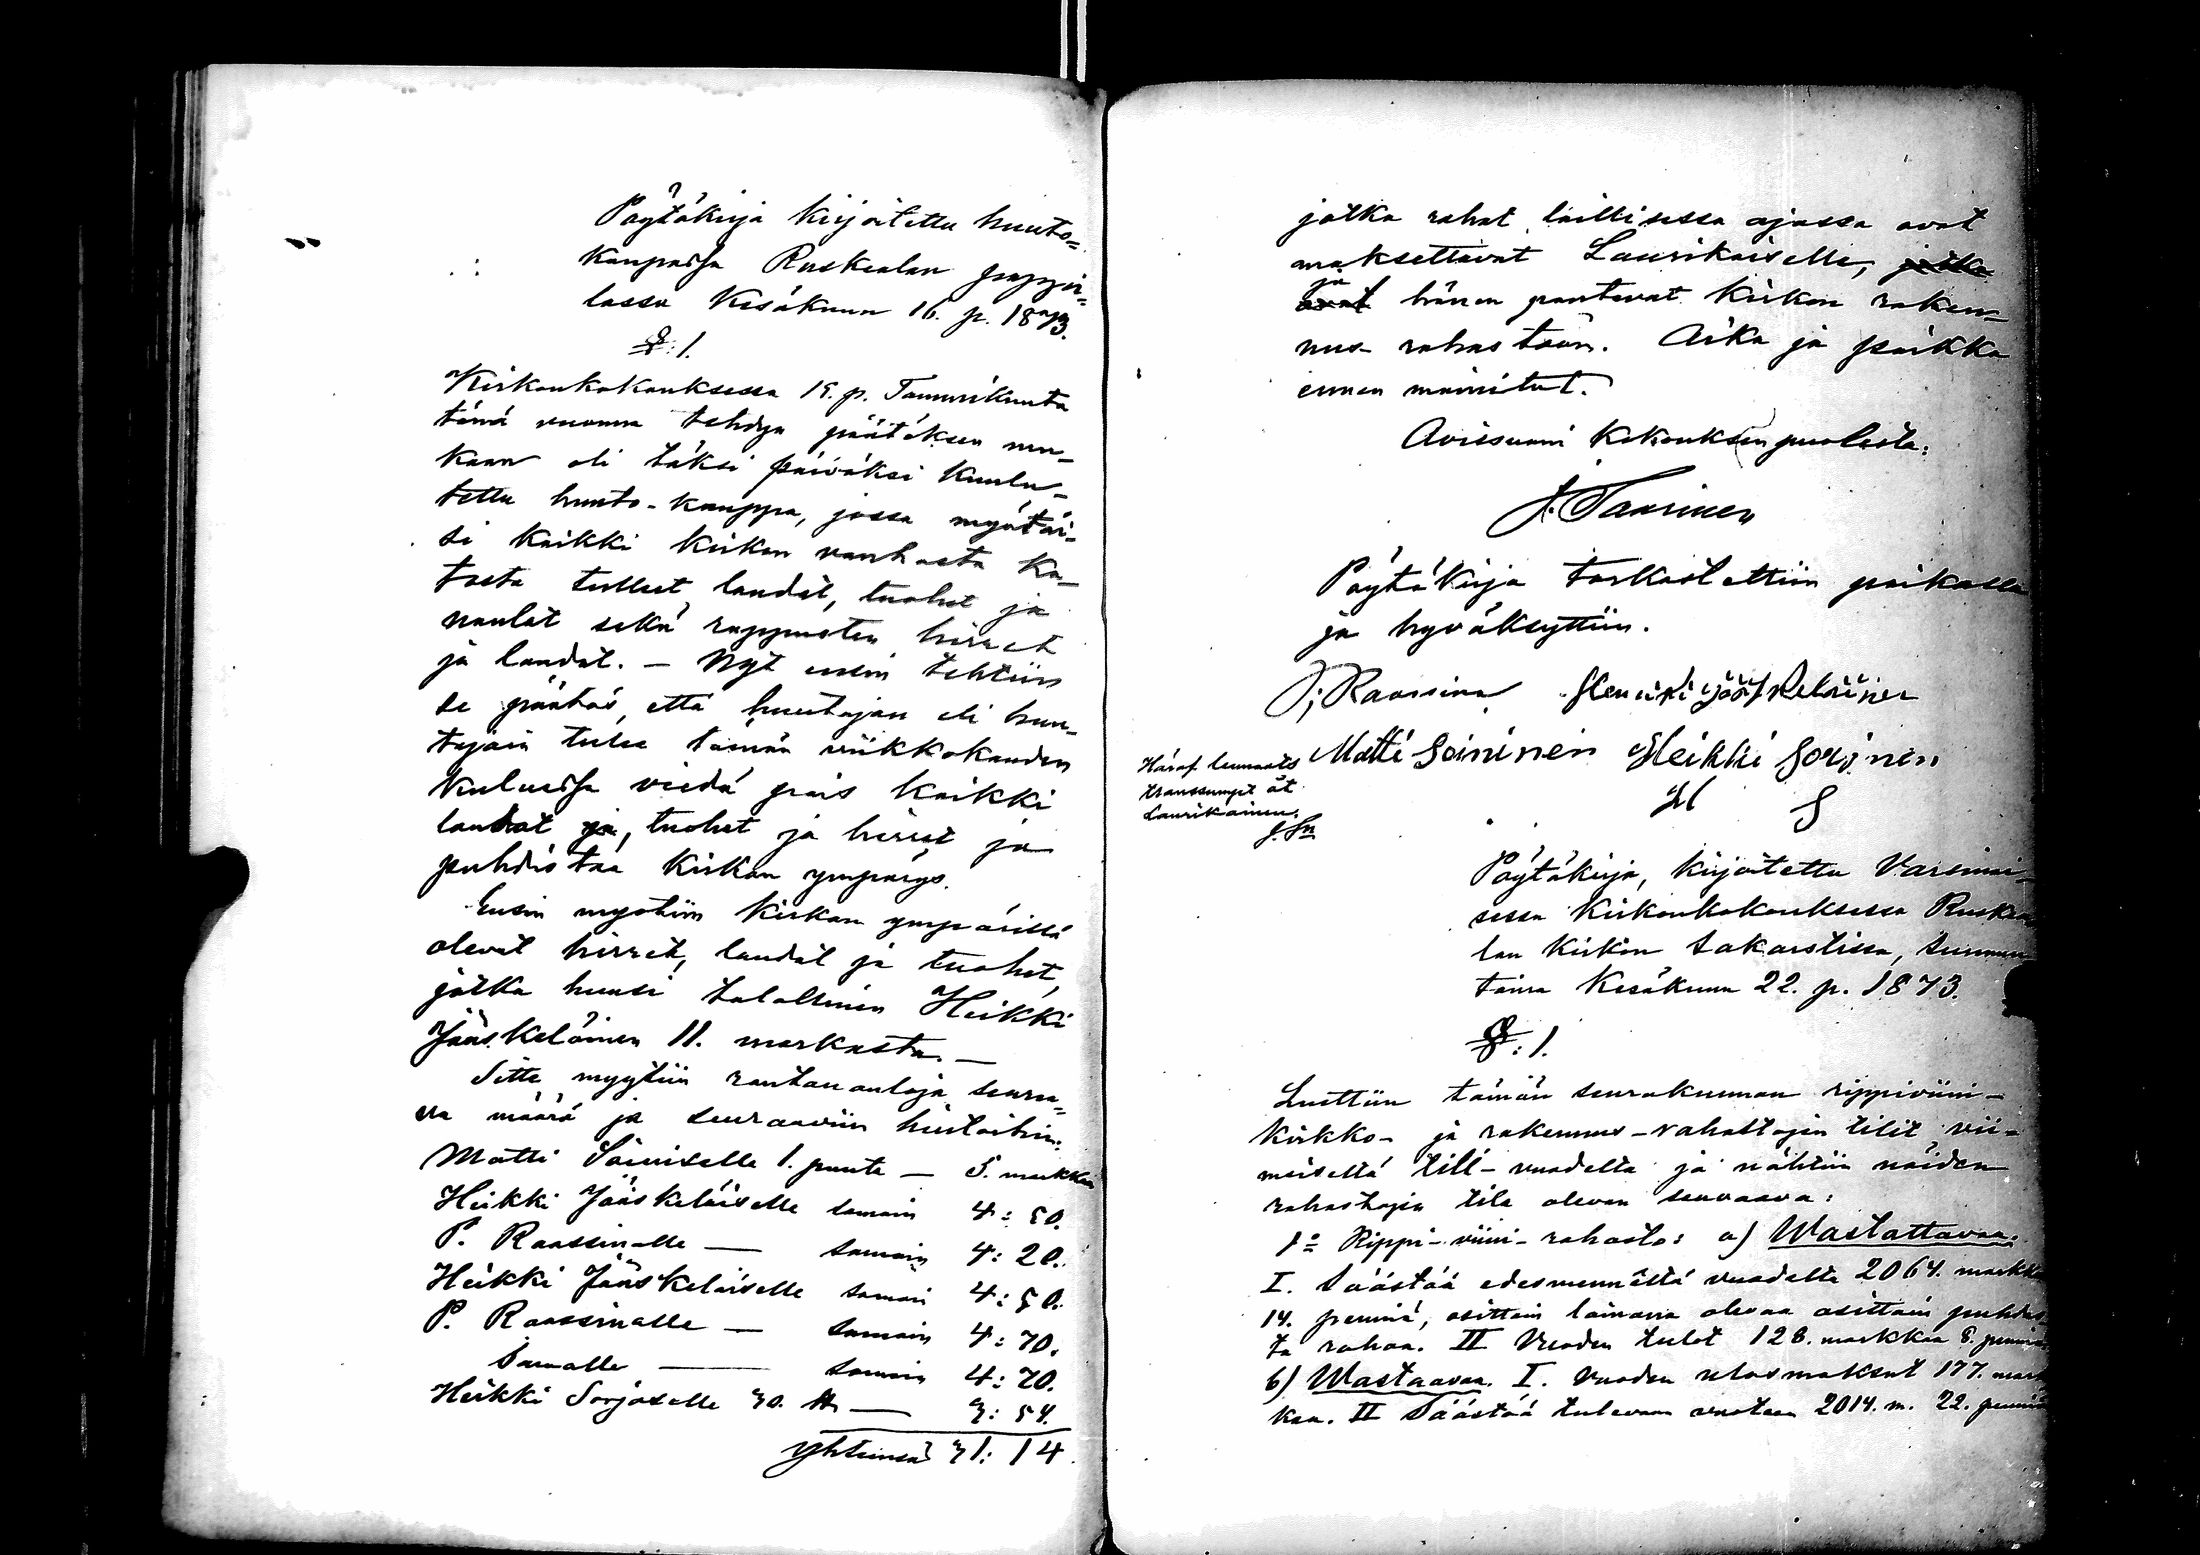 Pöytäkirja kirjoitettu huuto=
kaupassa Ruskealan pappi=
lassa Kesäkuun 16. p. 1873.
§: 1.
Kirkonkokouksessa 19. p. Tammikuuta
tänä vuonna tehdyn päätöksen mu-
kaan oli täksi päiväksi kuulu-
tettu huuto-kauppa, jossa myötäi-
si kaikki kirkon vanhasta ka-
tosta tulleet laudat, tuohet ja
naulat sekä rappusten hirret
ja laudat. – Nyt ensin tehtiin
se päätös, että huutajan eli huu-
tajain tulee tämän viikkokauden
kuluessa viedä pois kaikki
laudat ja, tuohet ja hirret ja
puhdistaa kirkon ympärys.
Ensin myötiin kirkon ympärillä
olevat hirret, laudat ja tuohet,
jotka huusi talollinen Heikki
Jääskeläinen 11. markasta. –
Sitte myytiin rautanauloja seuraa=
va määrä ja seuraaviin hintoihin:
Matti Soiniselle 1. puuta – 5. markkaa
Heikki Jääskeläiselle samoin 4: 50.
P. Raassinalle — samoin 4: 20.
Heikki Jääskeläiselle samoin 4: 50.
P. Raassinalle — samoin 4: 70.
Samalle — samoin 4: 70.
Heikki Sorjoselle 30. ℔ — 3: 54.
yhteensä 31: 14
jotka rahat laillisessa ajassa ovat
maksettavat Laurikaiselle, jotka
ja
ovat hänen pantavat kirkon raken-
nus-rahastoon. Aika ja paikka
ennen mainitut.
Arvissuani kokouksen puolesta:
J. Taarinen
Pöytäkirja tarkastettiin paikalla
ja hyväksyttiin.
P. Raassina Henriki Jääskeläinen
Matti Soininen Heikki Sorjonen
H S
Häraf lemnats
transsumpt åt
Laurikainen.
Pöytäkirja, kirjoitettu Varsinai-
sessa Kirkonkokouksessa Ruskea
lan kirkon sakaristissa, sunnun
taina Kesäkuun 22. p. 1873.
§: 1.
Luettiin tämän seurakunnan rippiviini-
kirkko- ja rakennus-rahastojen tilit vii-
meiseltä tili-vuodelta ja nähtiin näiden
rahastojen tila olevan seuraava:
1:o Rippi-viini-rahasto: a) Wastattavaa.
I. Säästöä edesmenneeltä vuodelta 2064. markkaa
14. penniä, osittain lainassa olevaa osittain puhdas
ta rahaa. II Vuoden tulot 128. markkaa 8. penniä.
b) Wastaavaa. I. Vuoden ulosmaksut 177. mark
kaa. II Säästöä tulevaan vuoteen 2014. m. 22. penniä